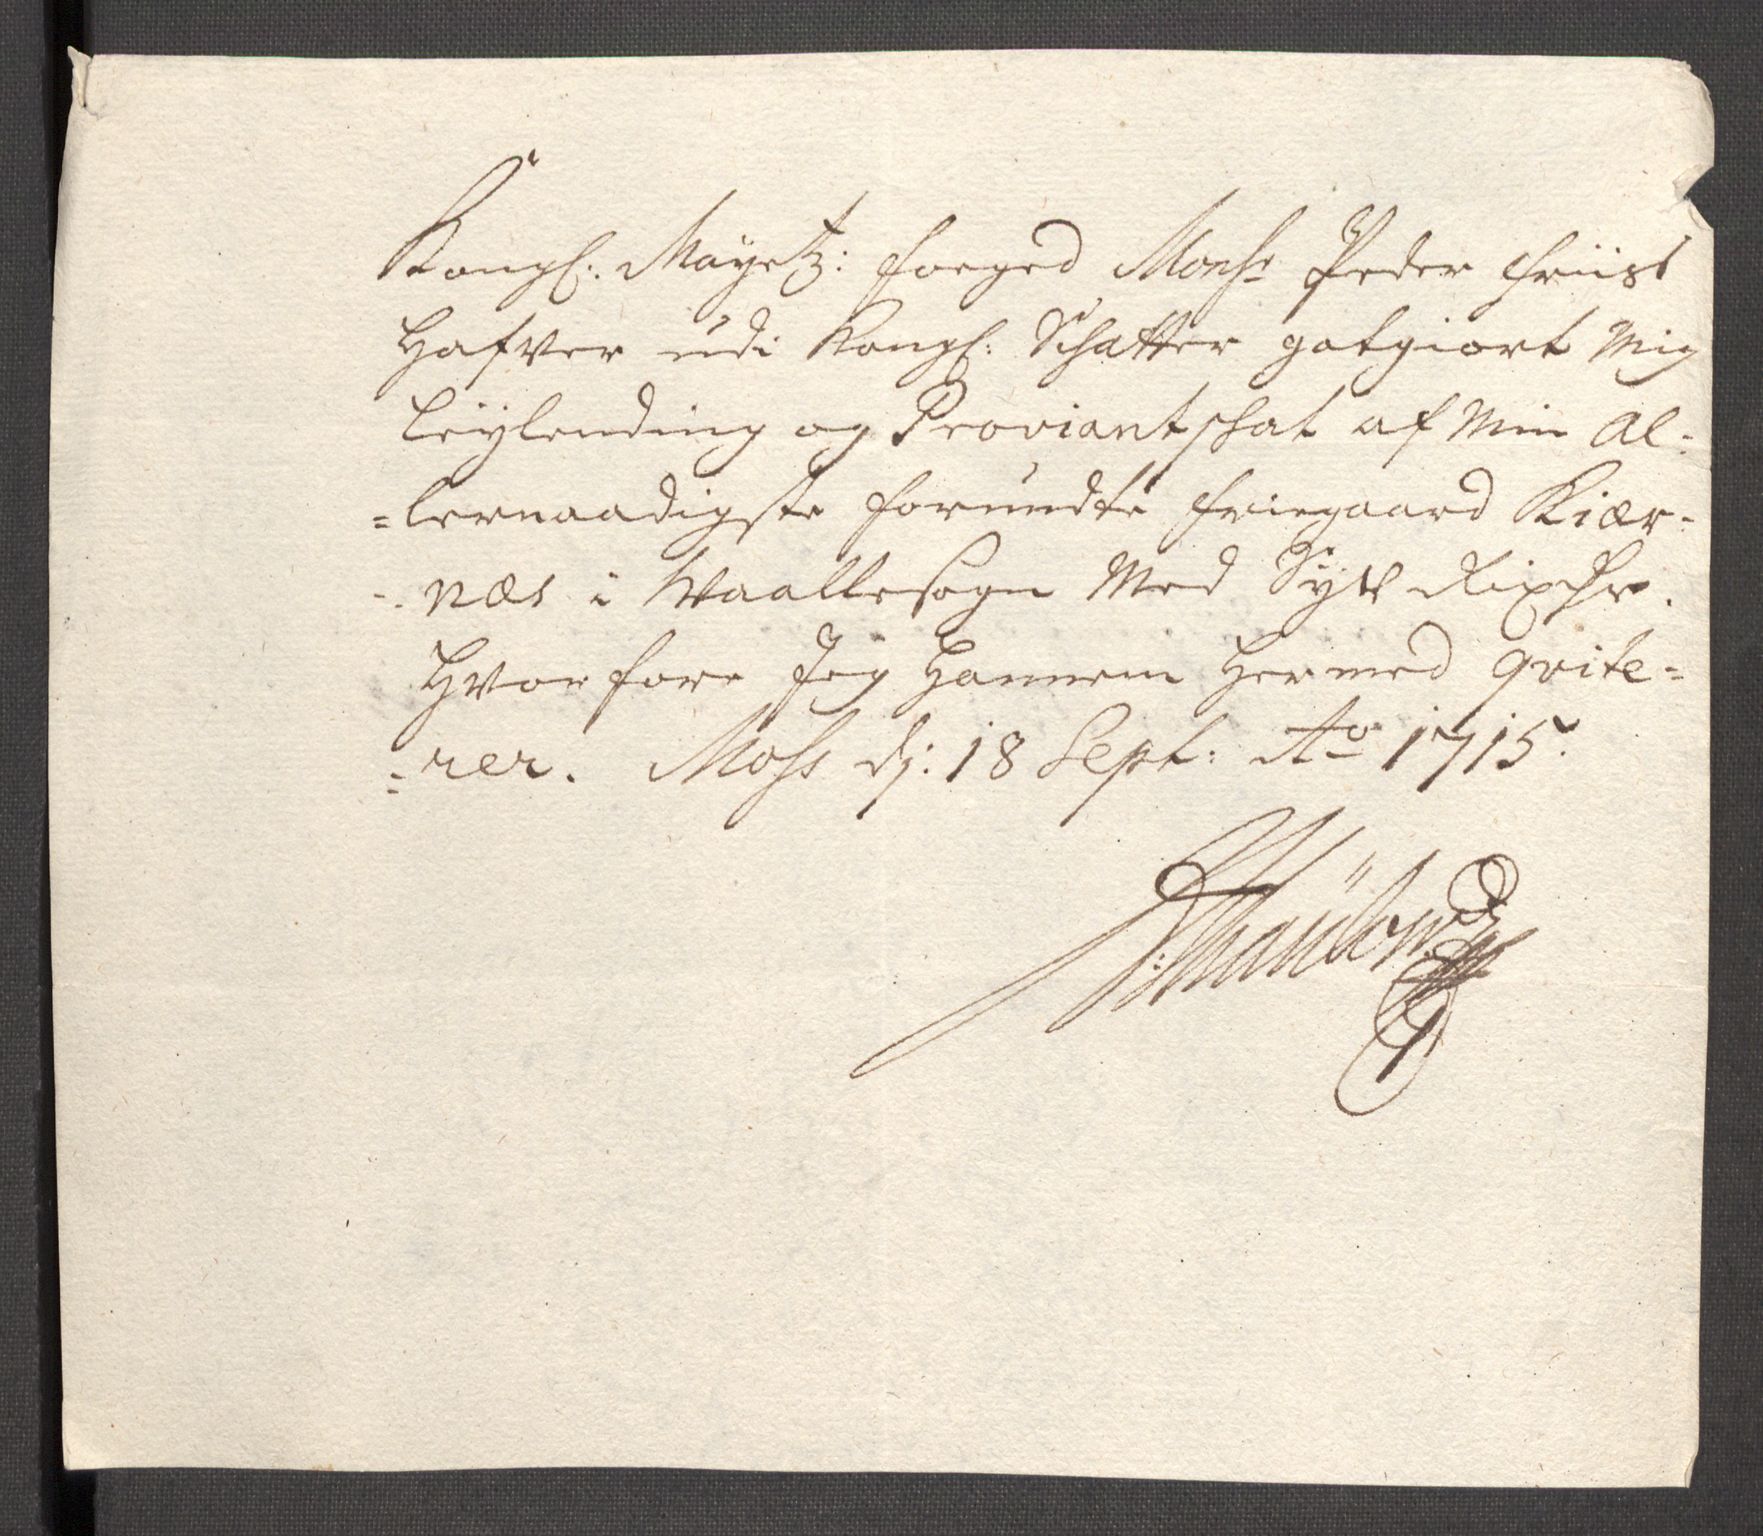 Kongl: Mayetz: Foeged Monsr Peder Friis
Hafver udi Kongl: Schatter gotgiort Mig
Leylending og Proviantschat af Min Al-
=lernaadigste forundte friegaard Kiær-
-næs i Waallesogn Med Syv Rixdr.
Hvorfore Jeg Hannem Hermed qvite=
=rer. Moss d: 18 Sept: Ao 1715.